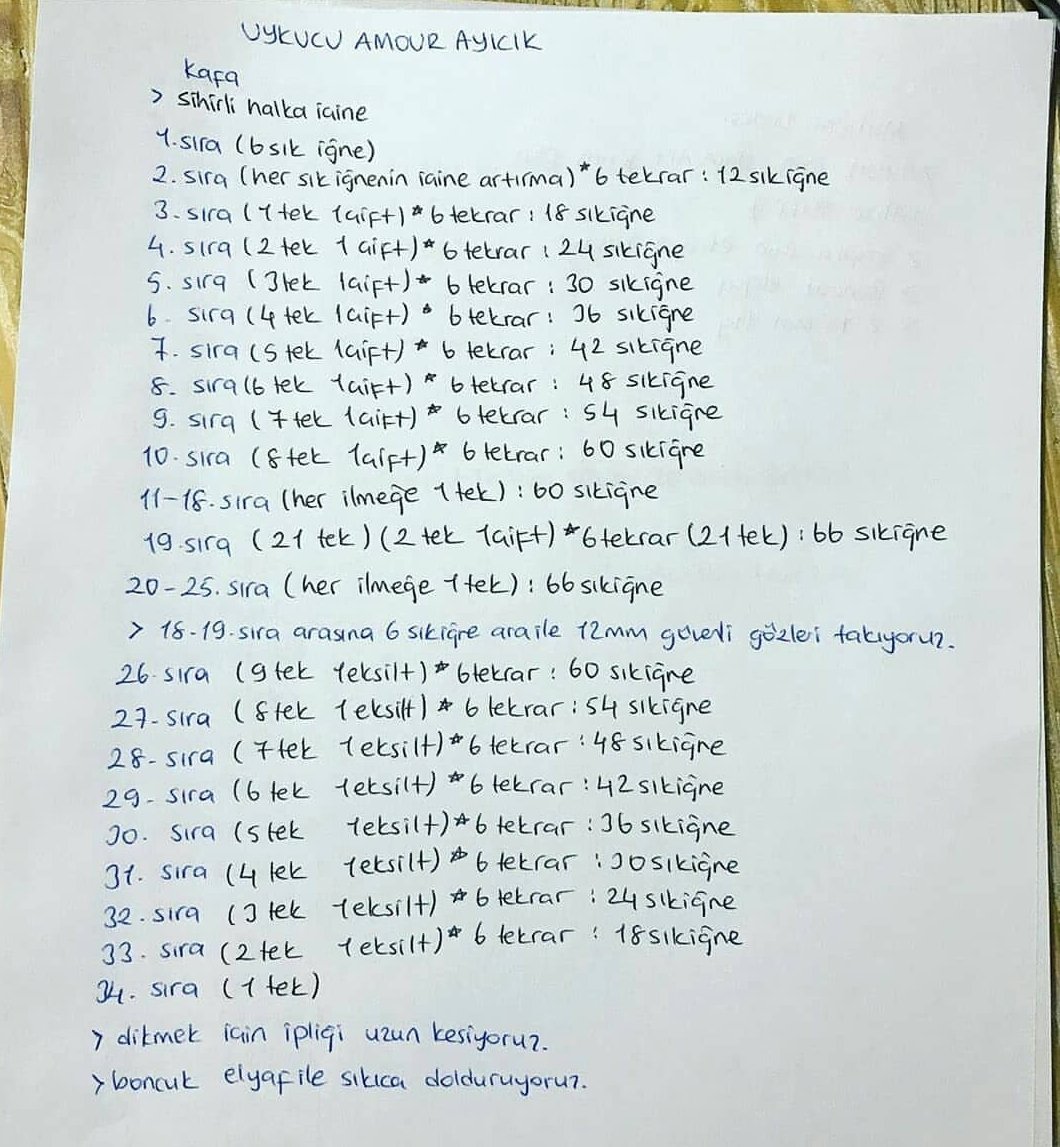 UYKUCU AMOUR AYICIK
Kafa
> sihirli halka içine
1.sıra (6 sık iğne)
2. sıra (her sık iğnenin içine artırma)*6 tekrar : 12 sıkiğne
3. sıra (1 tek 1çift)*6 tekrar : 18 sıkiğne
4. sıra (2 tek 1 çift)* 6 tekrar : 24 sıkiğne
5. sıra (3tek 1çift)* 6 tekrar : 30 sıkiğne
6. sıra (4 tek 1çift) * 6 tekrar : 36 sıkiğne
7. sıra (5 tek 1çift) * 6 tekrar : 42 sıkiğne
8. sıra (6 tek 1çift) * 6 tekrar : 48 sıkiğne
9. sıra (7 tek 1çift)* 6 tekrar : 54 sıkiğne
10. sıra (8 tek 1çift)* 6 tekrar : 60 sıkiğne
11-18. sıra (her ilmeğe 1 tek) : 60 sıkiğne
19.sıra (21 tek) (2 tek 1çift)*6tekrar (21 tek) : 66 sıkiğne
20-25. sıra (her ilmeğe 1 tek) : 66 sıkiğne
> 18-19. sıra arasına 6 sıkiğne ara ile 12mm güvenli gözleri takıyoruz.
26. sıra (9 tek 1eksilt)* 6tekrar : 60 sıkiğne
27. sıra (8tek 1eksilt)* 6 tekrar : 54 sıkiğne
28. sıra (7tek 1eksilt)*6 tekrar : 48 sıkiğne
29. sıra (6 tek 1eksilt) *6 tekrar : 42 sıkiğne
30. sıra (5 tek 1eksilt)*6 tekrar : 36 sıkiğne
31. sıra (4 tek 1eksilt)* 6 tekrar : 30 sıkiğne
32. sıra (3 tek 1eksilt) * 6 tekrar : 24 sıkiğne
33. sıra (2 tek 1eksilt)* 6 tekrar : 18 sıkiğne
34. sıra (1 tek)
> dikmek için ipliği uzun kesiyoruz.
> boncuk elyaf ile sıkıca dolduruyoruz.